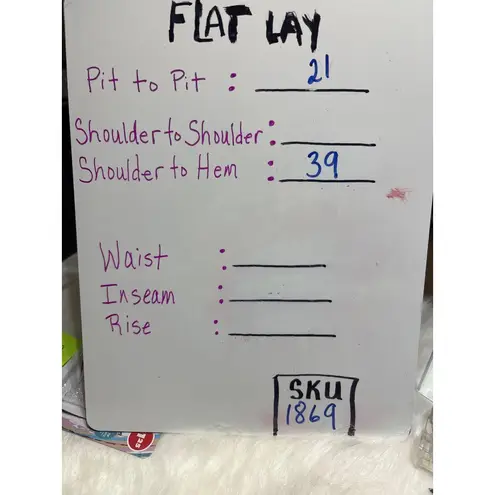 FLAT LAY
Pit to Pit : 21
Shoulder to Shoulder :
Shoulder to Hem : 39
Waist :
Inseam :
Rise :
SKU
1869